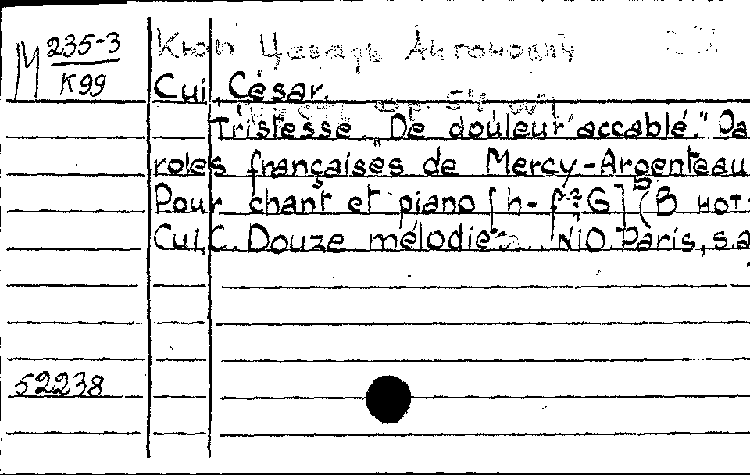 М 235-3
К99
Кюи Цезарь Антонович
Cui, César.
Tristesse. "De douleur accablé." Pa
roles françaises de Mercy-Argenteau
Pour chant et piano [h-f²; G] (В нот:
Cui, C. Douze mélodies. N10. Paris, s.a
52238